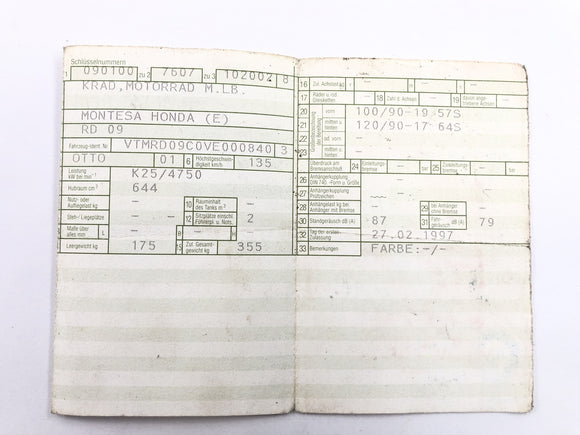 Schlüsselnummern
1 090100 zu 2 7607 zu 3 102002 8
KRAD,MOTORRAD M.LB.
MONTESA HONDA (E)
RD 09
Fahrzeug-Ident. Nr. VTMRD09C0VE000840 3
OTTO 01 6 Höchstgeschwin-digkeit km/h 135
Leistung kW bei min⁻¹ K25/4750
Hubraum cm³ 644
Nutz- oder Aufliegelast kg - 10 Rauminhalt des Tanks m³ -
Steh-/Liegeplätze - 12 Sitzplätze einschl. Führerpl. u. Nots. 2
Maße über alles mm L - B - H -
Leergewicht kg 175 15 Zul. Gesamt-gewicht kg 355
16 Zul. Achslast kg - - -
17 Räder u./od. Gleisketten - 18 Zahl d. Achsen - 19 davon ange-triebene Achsen -
20 vorn 100/90-19 57S
21 mitten u. hinten 120/90-17 64S
22 od. vorn - -
23 mitten u. hinten - -
24 Einleitungs-Bremse 25 Einleitungs-bremse bar
Überdruck am Bremsanschluß
26 Anhängerkupplung DIN 740.. -Form u. Größe -
27 Anhängerkupplung Prüfzeichen
28 Anhängelast kg bei Anhänger mit Bremse - 29 bei Anhänger ohne Bremse -
30 Standgeräusch dB (A) 87 31 Fahr-geräusch dB (A) 79
32 Tag der ersten Zulassung 27.02.1997
33 Bemerkungen FARBE:-/-